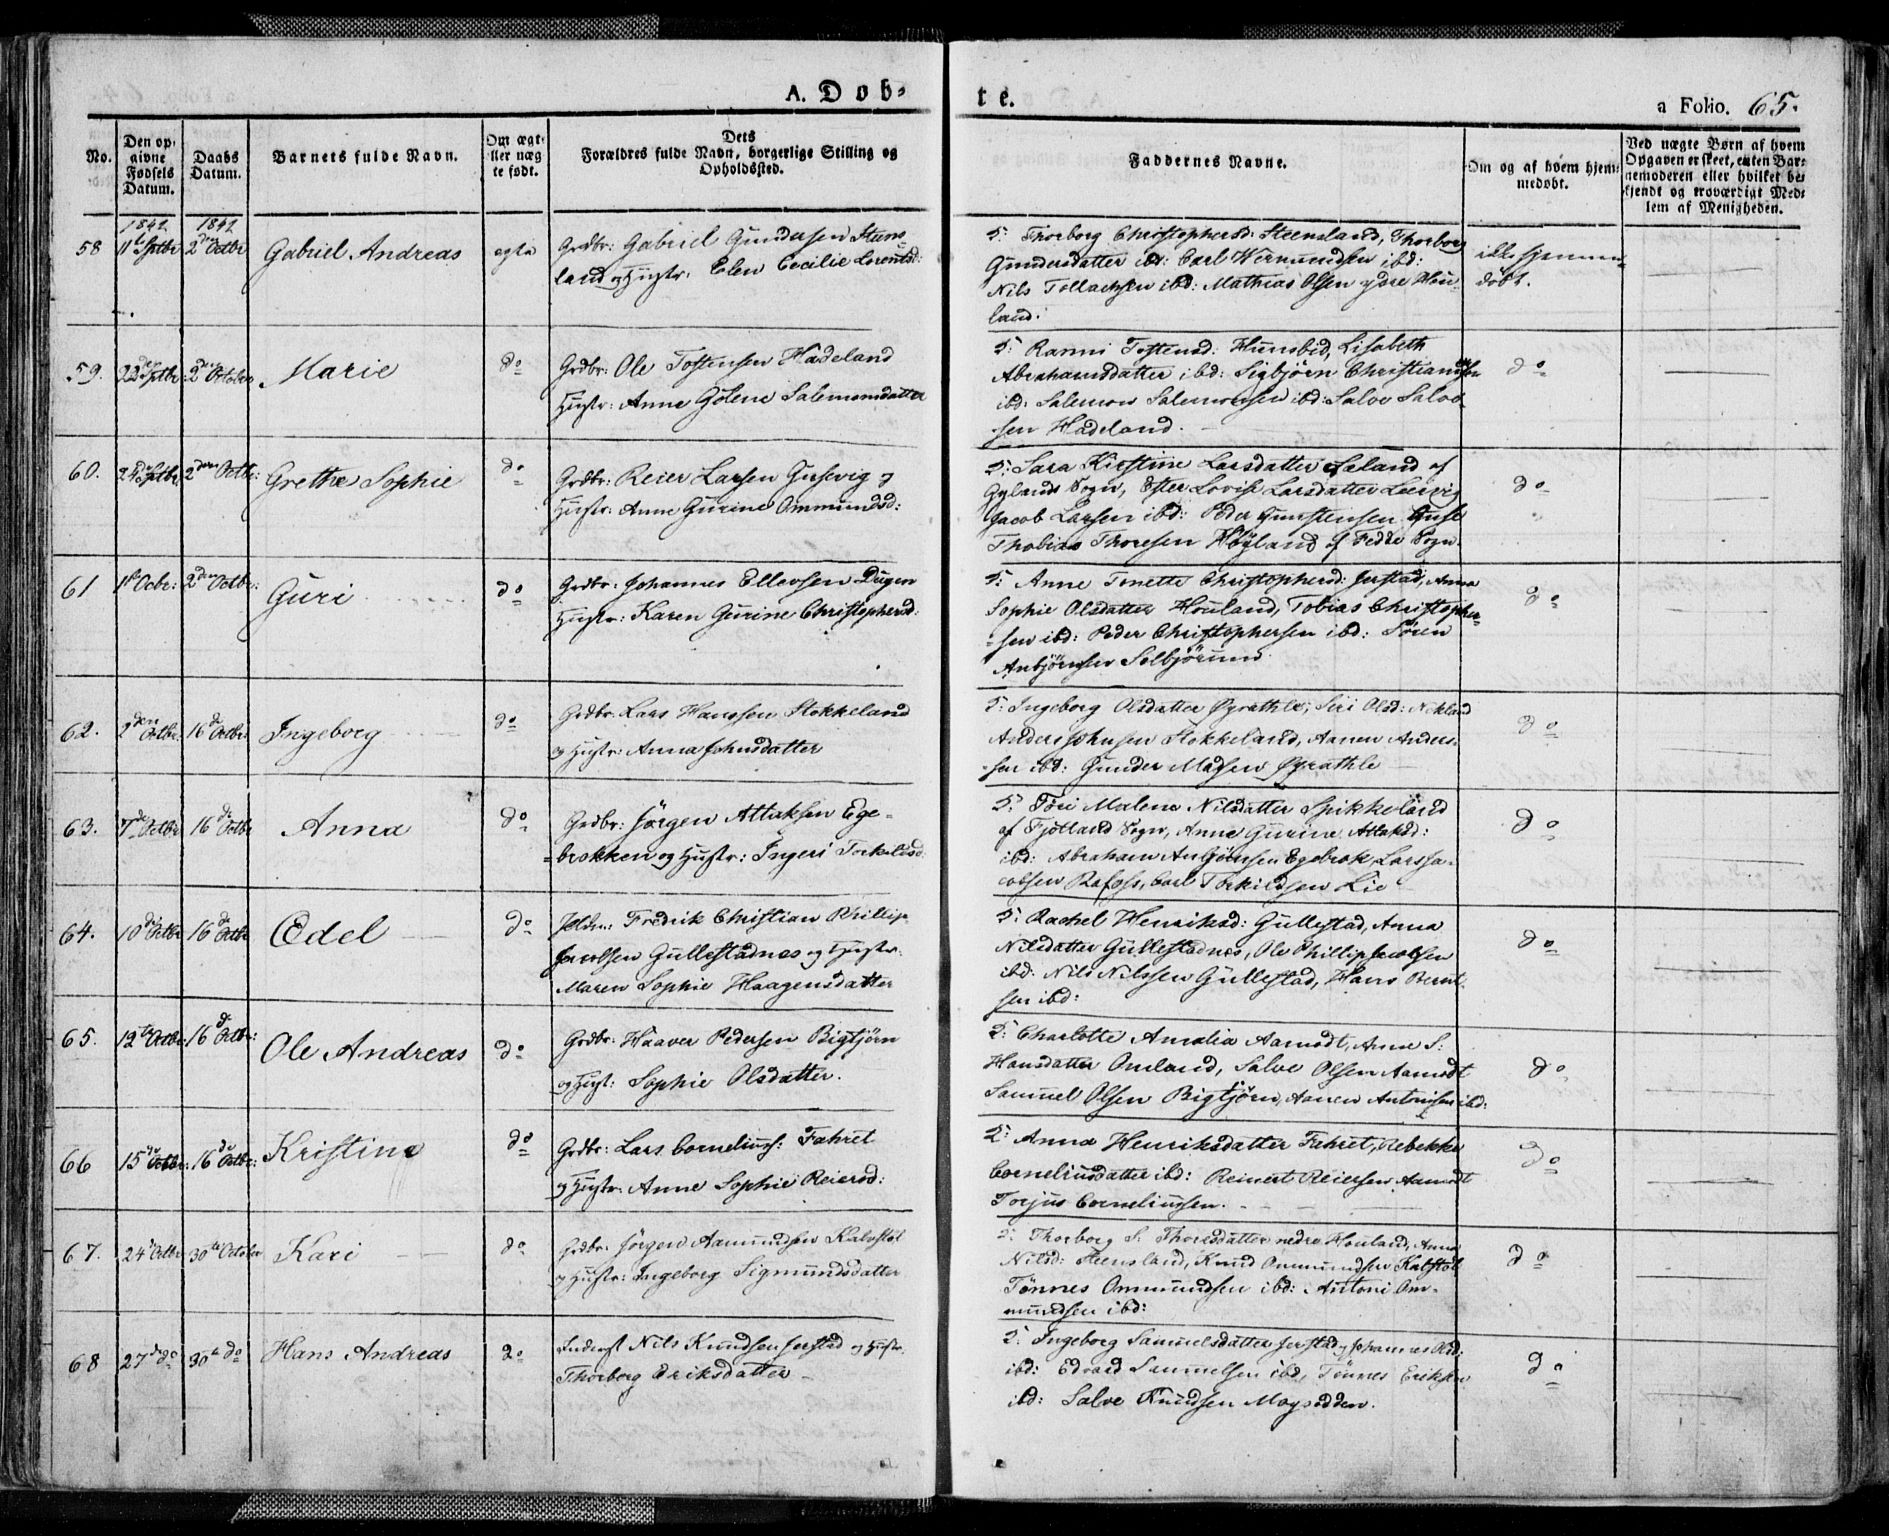 A. Døb-
te.
a Folio. 65.
No.
Den op-
givne
Fødsels
Datum.
Daabs
Datum.
Barnets fulde Navn.
Om ægt-
ller næg
te født.
Dets
Forældres fulde Navn, borgerlige Stilling og
Opholdssted.
Faddernes Navne.
Om og af hvem hjem-
medøbt.
Ved uægte Børn af hvem
Opgaven er skeet, enten Bar-
nemoderen eller hvilket be
kjendt og troværdigt Med-
lem af Menigheden.
1842 1842
58 11te Sptbr 2den Octbr Gabriel Andreas egte Grdbr: Gabriel Gundersen Stens
land og Hustr: Elen Cecilie Lorentsd:
5: Thorborg Christophersd: Steensland, Thorborg
Gundersdatter ibd: Carl Wermundsen ibd:
Nils Tollachsen ibd: Mathias Olsen ydre Hou-
land.
ikke hjemme
døbt.
59. 22de Sptbr: 2den October Marie do Grdbr: Ole Tostensen Hadeland
Hustr: Anne Golene Salemonsdatter
5: Ranni Tostensd: Hunsbed, Lisabeth
Abrahamsdatter ibd: Sigbjørn Christiansen
ibd: Salemon Salemonsen ibd: Salve Salve-
sen Hadeland.
do
60. 24de Sptbr 2den Octbr: Grethe Sophie do Grdbr: Reier Larsen Gusevig og
Hustr: Anne Gurine Ommundsd:
5: Sara Kirstine Larsdatter Sæland af
Gylands Sogn, Ester Lovise Larsdatter Leervig
Jacob Larsen ibd: Peder Gunstensen Guse
Thobias Thoresen Høyland af Fedde Sogn.
do
61 1ste Ocbr: 2den Octbr: Guri do Grdbr: Johannes Ellevsen Dugan
Hustr: Karen Gurine Christophersd:
5: Anne Tonette Christophersd: Jerstad, Anna
Sophie Olsdatter Houland, Tobias Christopher-
sen ibd: Peder Christophersen ibd: Søren
Anbjønsen Selbjørund
do
62. 2den Octbr: 16de Octbr: Ingeborg do Grdbr: Lars Hanssen Stokkeland
og Hustr: Anna Johnsdatter
5: Ingeborg Olsdatter Øyrathle, Siri Olsd: Nekland
Anders Johnsen Stokkeland, Aanen Anders-
sen ibd: Gunder Madsen Øyrathle
do
63. 7de Octbr 16de Octbr Anna do Grdbr: Jørgen Attaksen Ege-
brokken og Hustr: Ingeri Torkelsd:
5: Tøri Malene Nilsdatter Spikkeland
af Fjotland Sogn, Anne Gurine Attaksd:
ibd: Abraham Anbjønsen Egebrok, Lars Ja-
cobsen Rafoss, Carl Torkildsen Lie
do
64. 10de Octbr 16de Octbr Edel do Fredrik Christian Phillip
Jacobsen Gullestadnes og Hustr:
Maren Sophie Haagensdatter
5: Rachel Henriksd: Gullestad, Anna
Nilsdatter Gullestadnes, Ole Phillip Jacobsen
ibd: Nils Nilssen Gullestad, Hans Bernt
sen ibd:
do
65. 12te Octbr: 16de Octbr: Ole Andreas do Grdbr: Haaver Pedersen Bigtjørn
og Hust: Sophie Olsdatter.
5: Charlotte Amalia Aamodt, Anne S:
Hansdatter Omland, Salve Olsen Aamodt
Samuel Olsen Bigtjørn, Aanen Antonisen ibd:
do
66 15de Octbr: 16de Octbr: Kristine do Grdbr: Lars Corneliuss: Fahret
og Hustr: Anne Sophie Reiersd:
5: Anna Henriksdatter Fahret, Rebekke
Corneliusdatter ibd: Reinert Reiersen Aamodt
Torjus Corneliussen.
do
67. 24de Octbr 30te October Kari do Grdbr: Jørgen Aamundsen Kalvstøl
og Hustr: Ingeborg Sigmundsdatter
5: Thorborg S: Thorsdatter nedre Houland, Anna
Nilsd: Steensland, Knud Ommundsen Kalvstøl
Tønnes Ommundsen ibd: Antoni Om-
mundsen ibd:
do
68 27de do 30te do Hans Andreas do Inderst Nils Knudsen Jerstad og Hustr:
Thorborg Eriksdatter
5: Ingeborg Samuelsdatter Jerstad, Johannes Olsd:
ibd: Edvard Samuelsen ibd, Tønnes Eriksen
ibd: Salve Knudsen Moysødden.
do